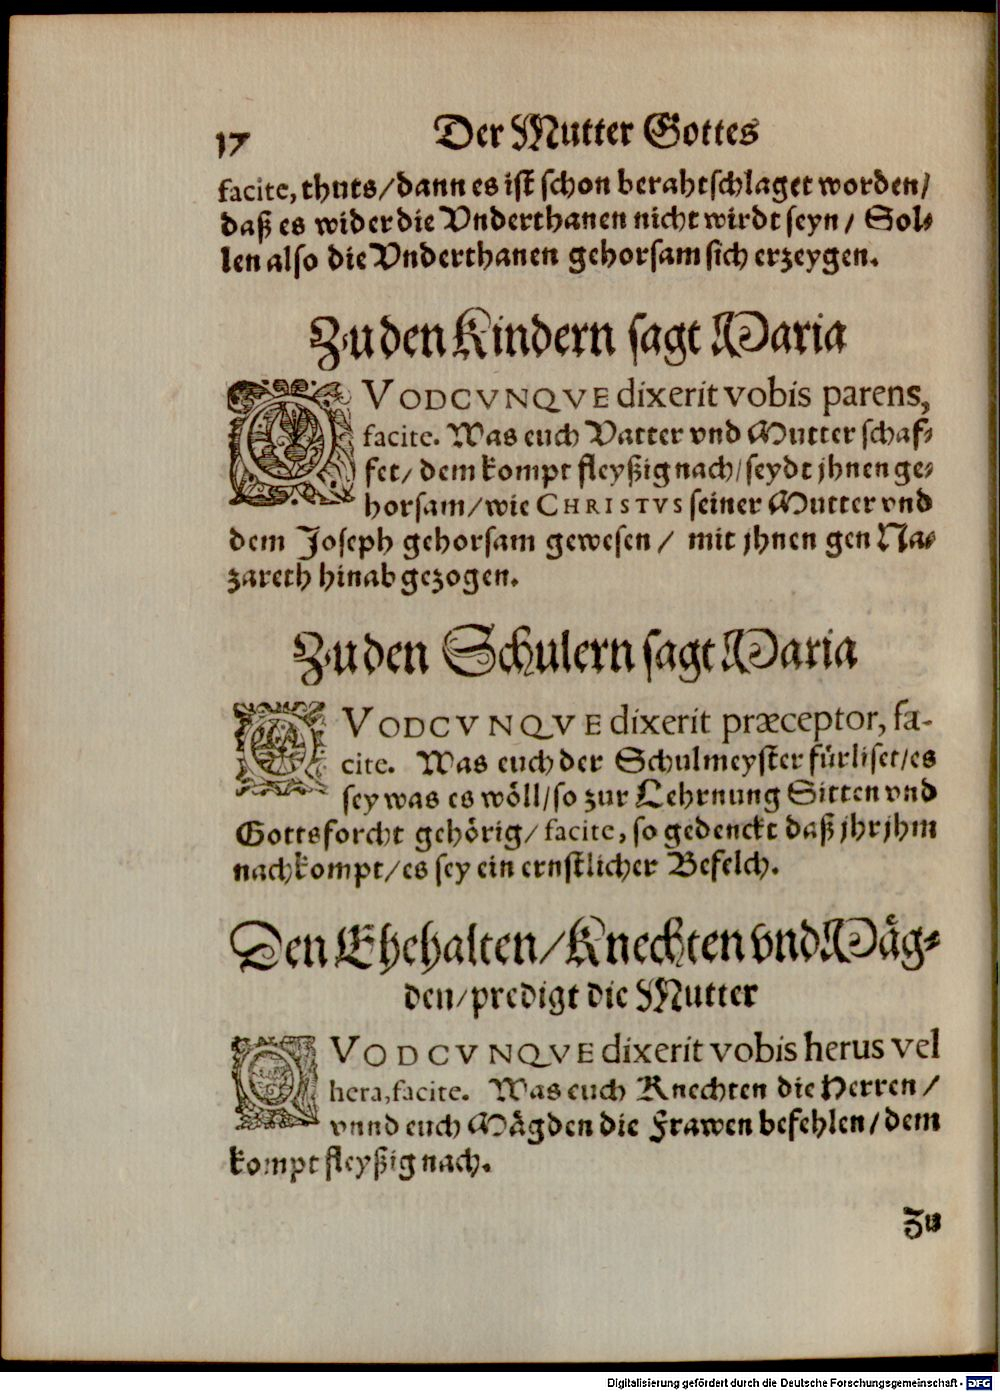 17 Der Mutter Gottes
facite, thuts/dann es ist schon berahtschlaget worden/
daß es wider die Vnderthanen nicht wirdt seyn/ Sol-
len also die Vnderthanen gehorsam sich erzeygen.
Zu den Kindern sagt Maria
QVODCVNQVE dixerit vobis parens,
facite. Was euch Vatter vnd Mutter schaf-
fet/ dem kompt fleyßig nach/seydt jhnen ge-
horsam/wie CHRISTVS seiner Mutter vnd
dem Joseph gehorsam gewesen/ mit jhnen gen Na-
zareth hinab gezogen.
Zu den Schulern sagt Maria
QVODCVNQVE dixerit præceptor, fa-
cite. Was euch der Schulmeyster fürliset/es
sey was es wöll/so zur Lehrnung Sitten vnd
Gottsforcht gehörig/facite, so gedenckt daß jhr jhm
nachkompt/es sey ein ernstlicher Befelch.
Den Ehehalten/Knechten vnd Mäg-
den/predigt die Mutter
QVODCVNQVE dixerit vobis herus vel
hera, facite. Was euch Knechten die Herren/
vnnd euch Mägden die Frawen befehlen/dem
kompt fleyßig nach.
Zu
Digitalisierung gefördert durch die Deutsche Forschungsgemeinschaft - DFG